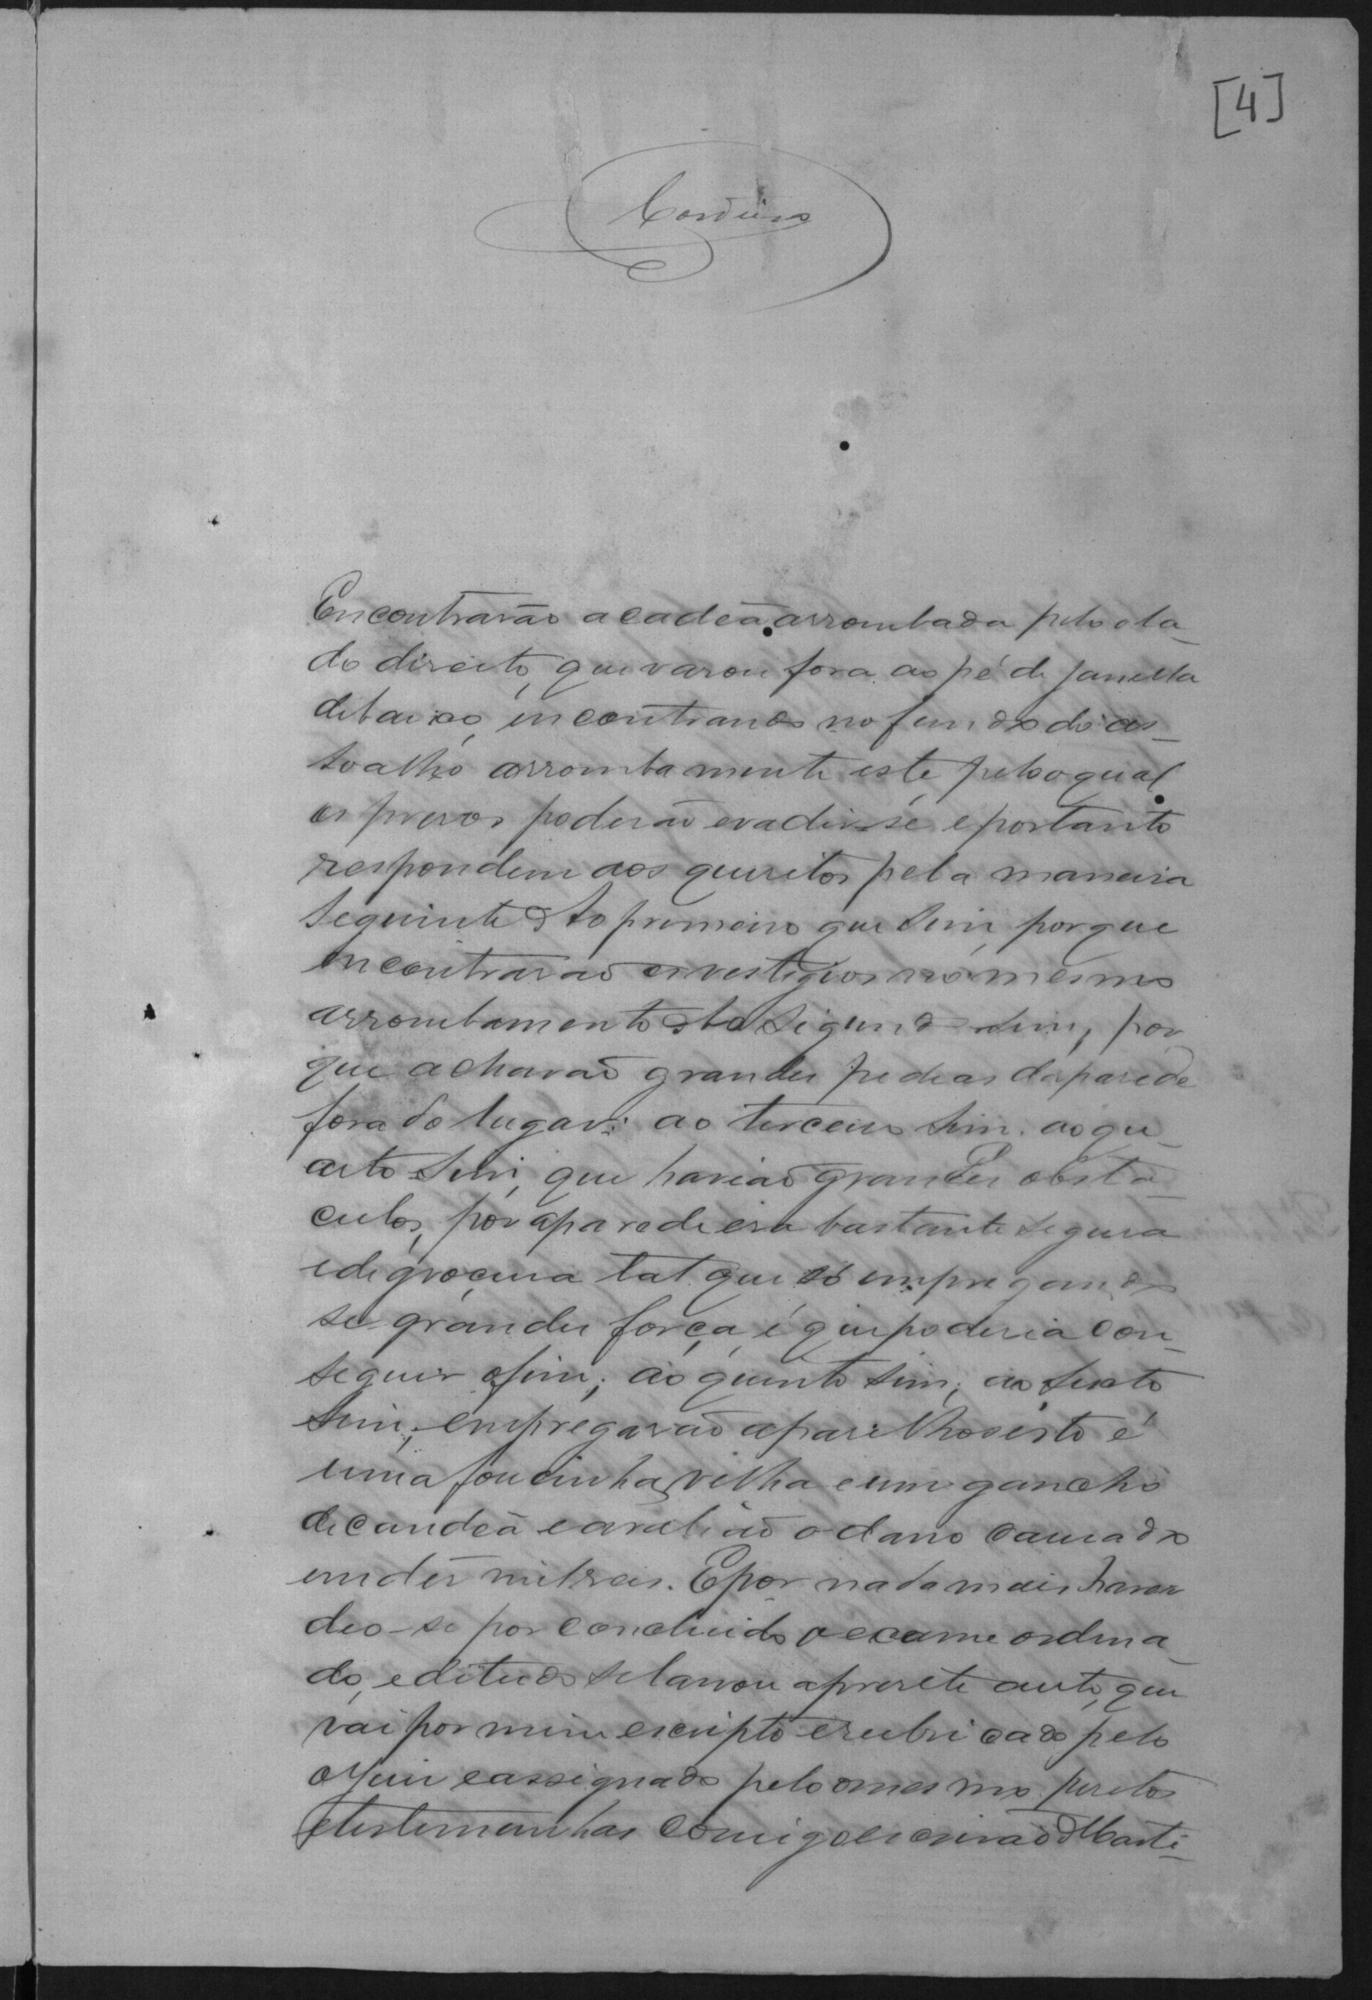 [4]
Cordeiro
Encontrarão a cadeia arrombada pelo la-
do direito, que varou fora ao pé de janella
debaixo, encontrando no fundo do as-
soalho arrombamento este, pelo qual
os prezos poderão evadir-se e portanto
respondem aos quesitos pela maneira
seguinte Ao primeiro que sim, porque
encontrarão os vestigios no mesmo
arrombamento ao segundo sim, por
que acharão grandes pedras da parede
fora do lugar; ao terceiro sim. ao qu-
arto sim, que havião grandes obsta-
culos, por a parede era bastante segura
e de groçura tal que só empregando
se grandes força, é que poderia con-
seguir o fim; ao quinto sim; ao sexto
sim; empregarão aparelhos isto é
uma foucinha velha e um gancho
de candeã e avalião o dano causado
em des mil reis. E por nada mais haver
deo-se por concluido o exame ordena-
do, e de tudo se lavrou a presete auto, que
vai por mim escripto e rubricado pelo
o Juiz e assignado pelo o mesmo peritos
e testemunhas comigo escrivão Marti-